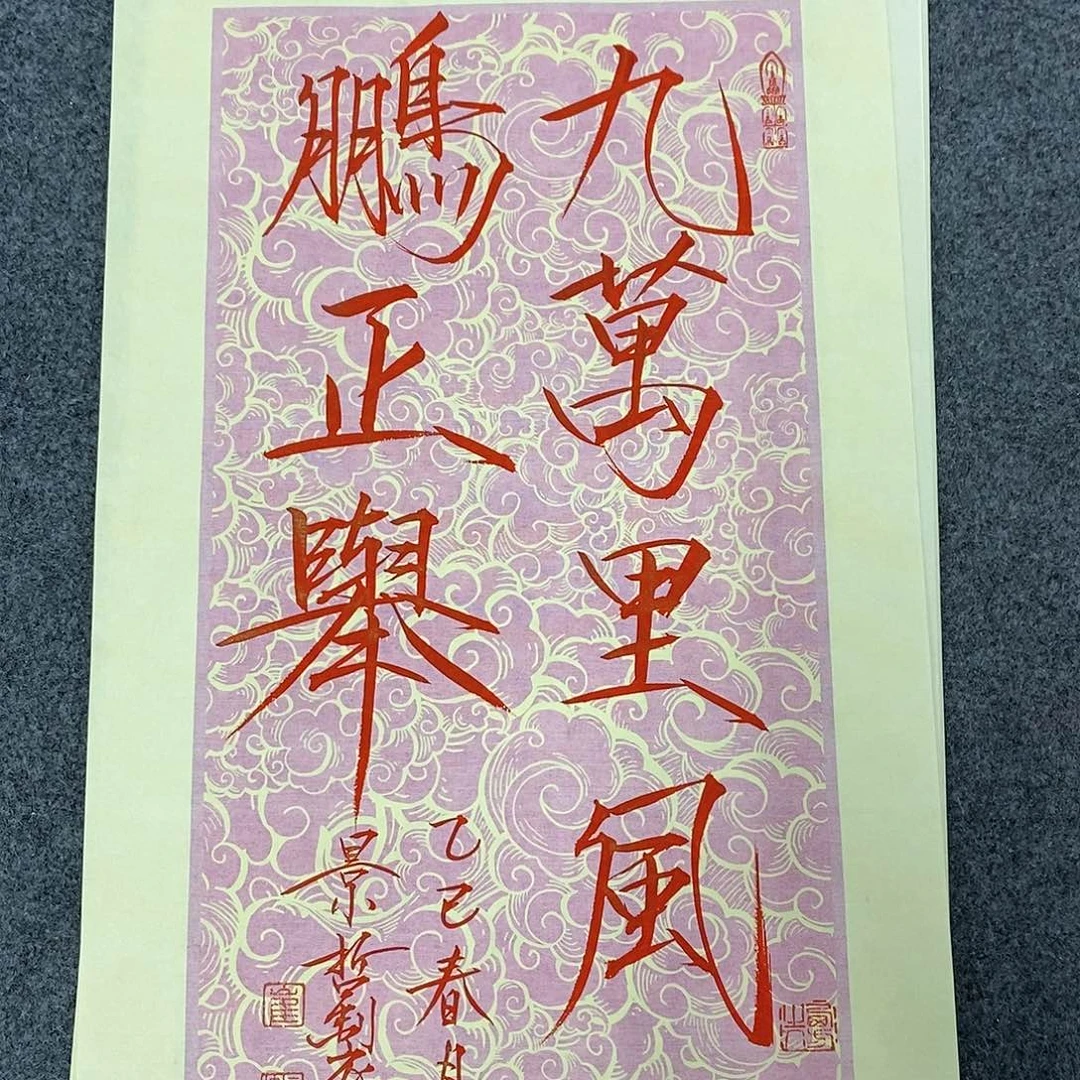 九萬里風
鵬正舉
乙巳春月
景哲劉